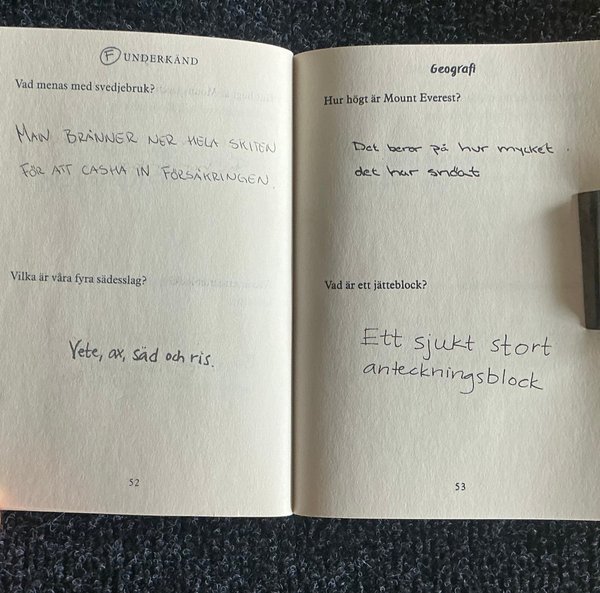 F UNDERKÄND
Vad menas med svedjebruk?
MAN BRÄNNER NER HELA SKITEN
FÖR ATT CASHA IN FÖRSÄKRINGEN.
Vilka är våra fyra sädesslag?
Vete, ax, säd och ris.
52
Geografi
Hur högt är Mount Everest?
Det beror på hur mycket
det har snöat
Vad är ett jätteblock?
Ett sjukt stort
anteckningsblock
53